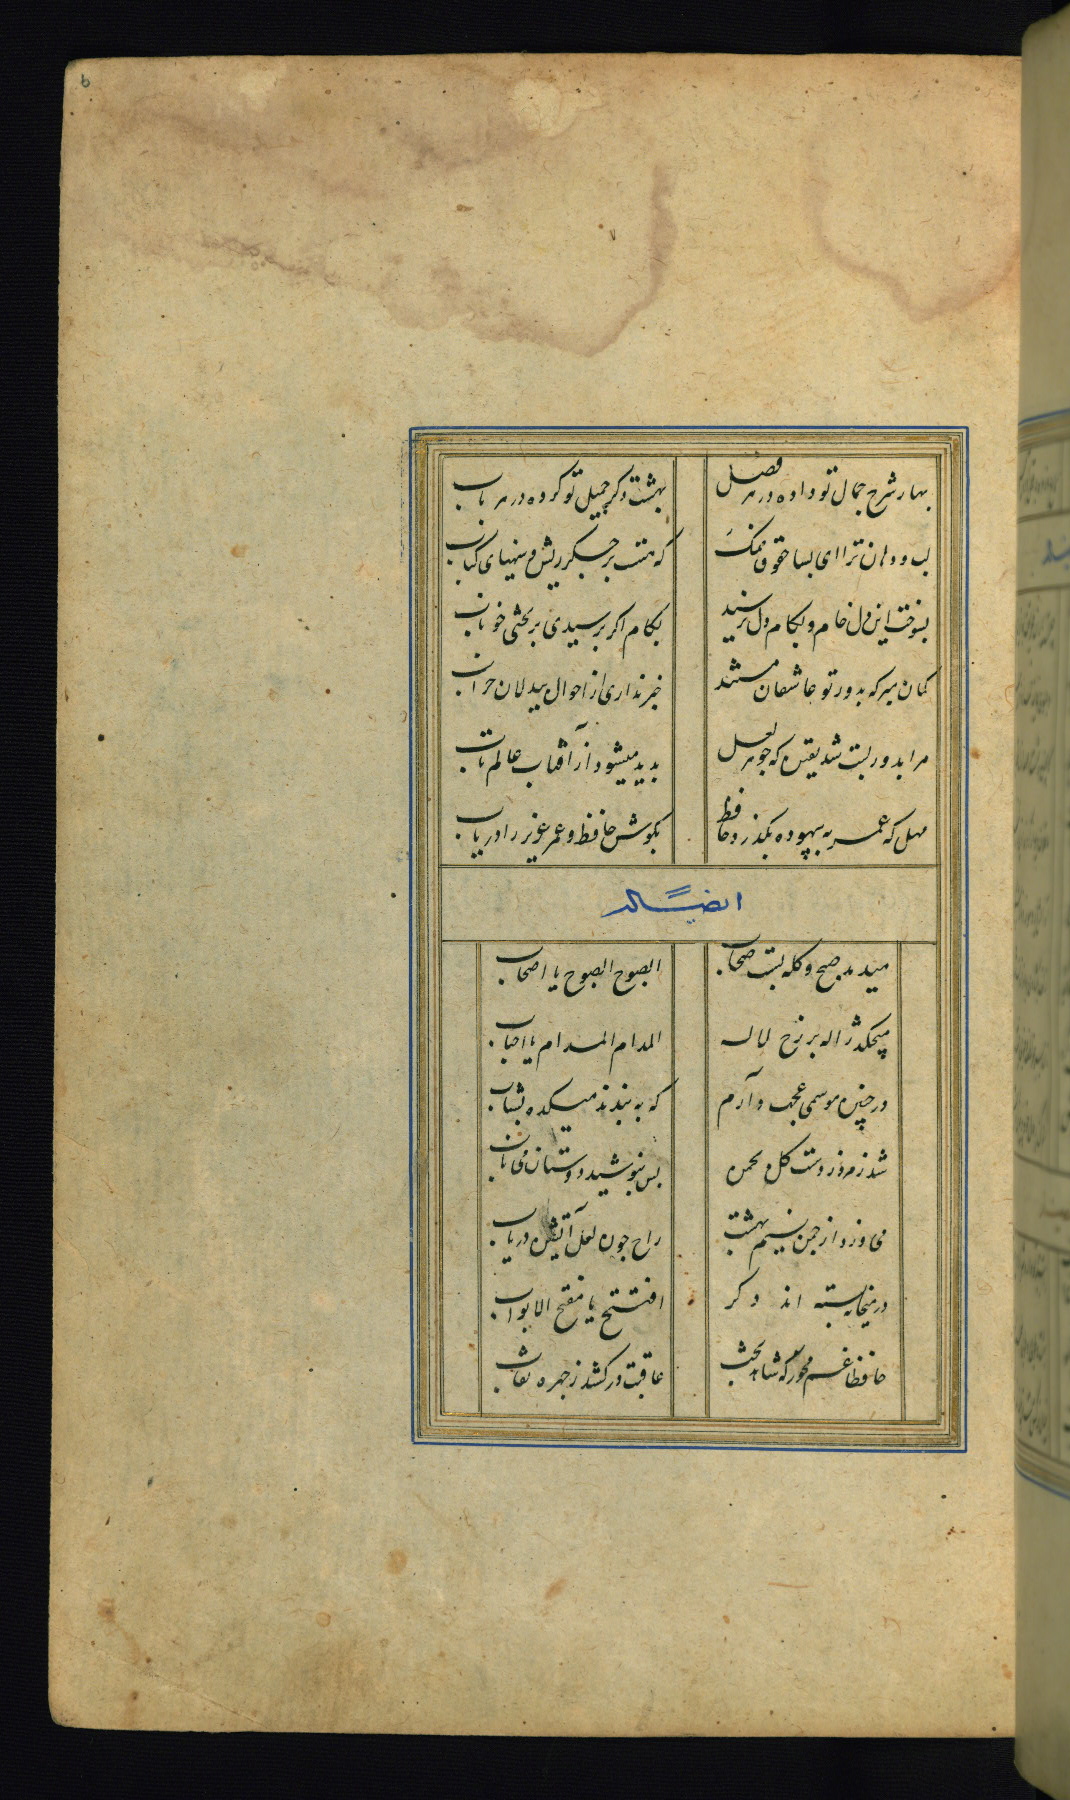 بهار شرح جمال تو داده در هر فصل
بهشت ذکر جمیل تو کرده در هر باب
لب و دهان ترا ای بسا حقوق نمک
که هست بر جگر ریش و سینهای کباب
بسوخت این دل خام و بکام دل نرسید
بکام اگر برسیدی نریختی خوناب
گمان مبر که بدور تو عاشقان مستند
خبر نداری از احوال بیدلان خراب
مرا بدور لبت شد یقین که جوهر لعل
بدید میشود از آفتاب عالم تاب
مهل که عمر به بیهوده بگذرد حافظ
بکوش حافظ و عمر عزیز را دریاب
ایضاً له
میدمد صبح و کله بست سحاب
الصبوح الصبوح یا اصحاب
میچکد ژاله بر رخ لاله
المدام المدام یا احباب
در چنین موسمی عجب دارم
که به بندند میکده بشتاب
شد زمرد
بس بنوشید دوستان می ناب
می وزد از چمن نسیم بهشت
راح چون لعل آتشین دریاب
در میخانه بسته اند دگر
افتتح یا مفتح الابواب
حافظا غم مخور که شاهد بخت
عاقبت برکشد ز چهره نقاب